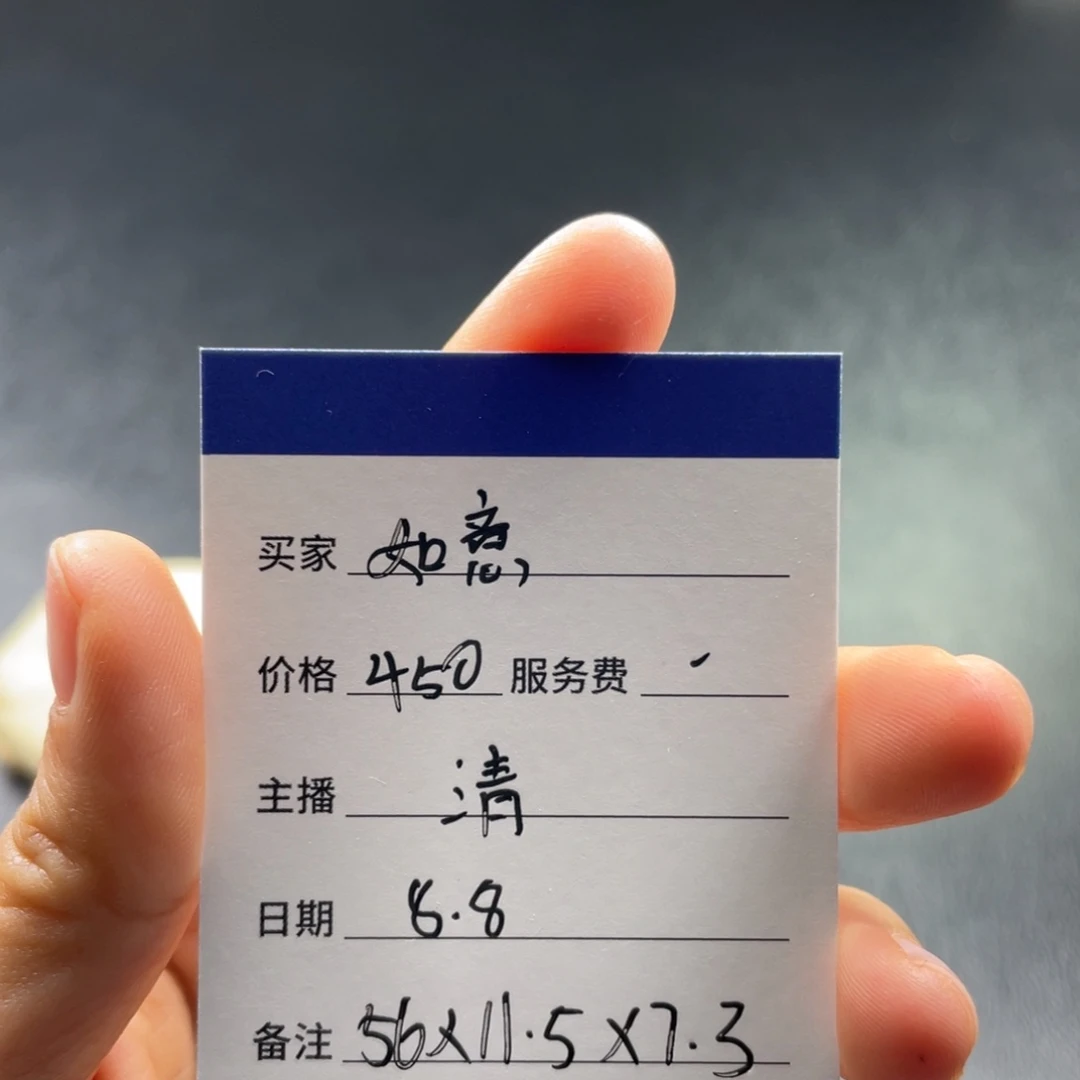 买家 如意
价格 450 服务费
主播 清
日期 8.8
备注 56x11.5x7.3